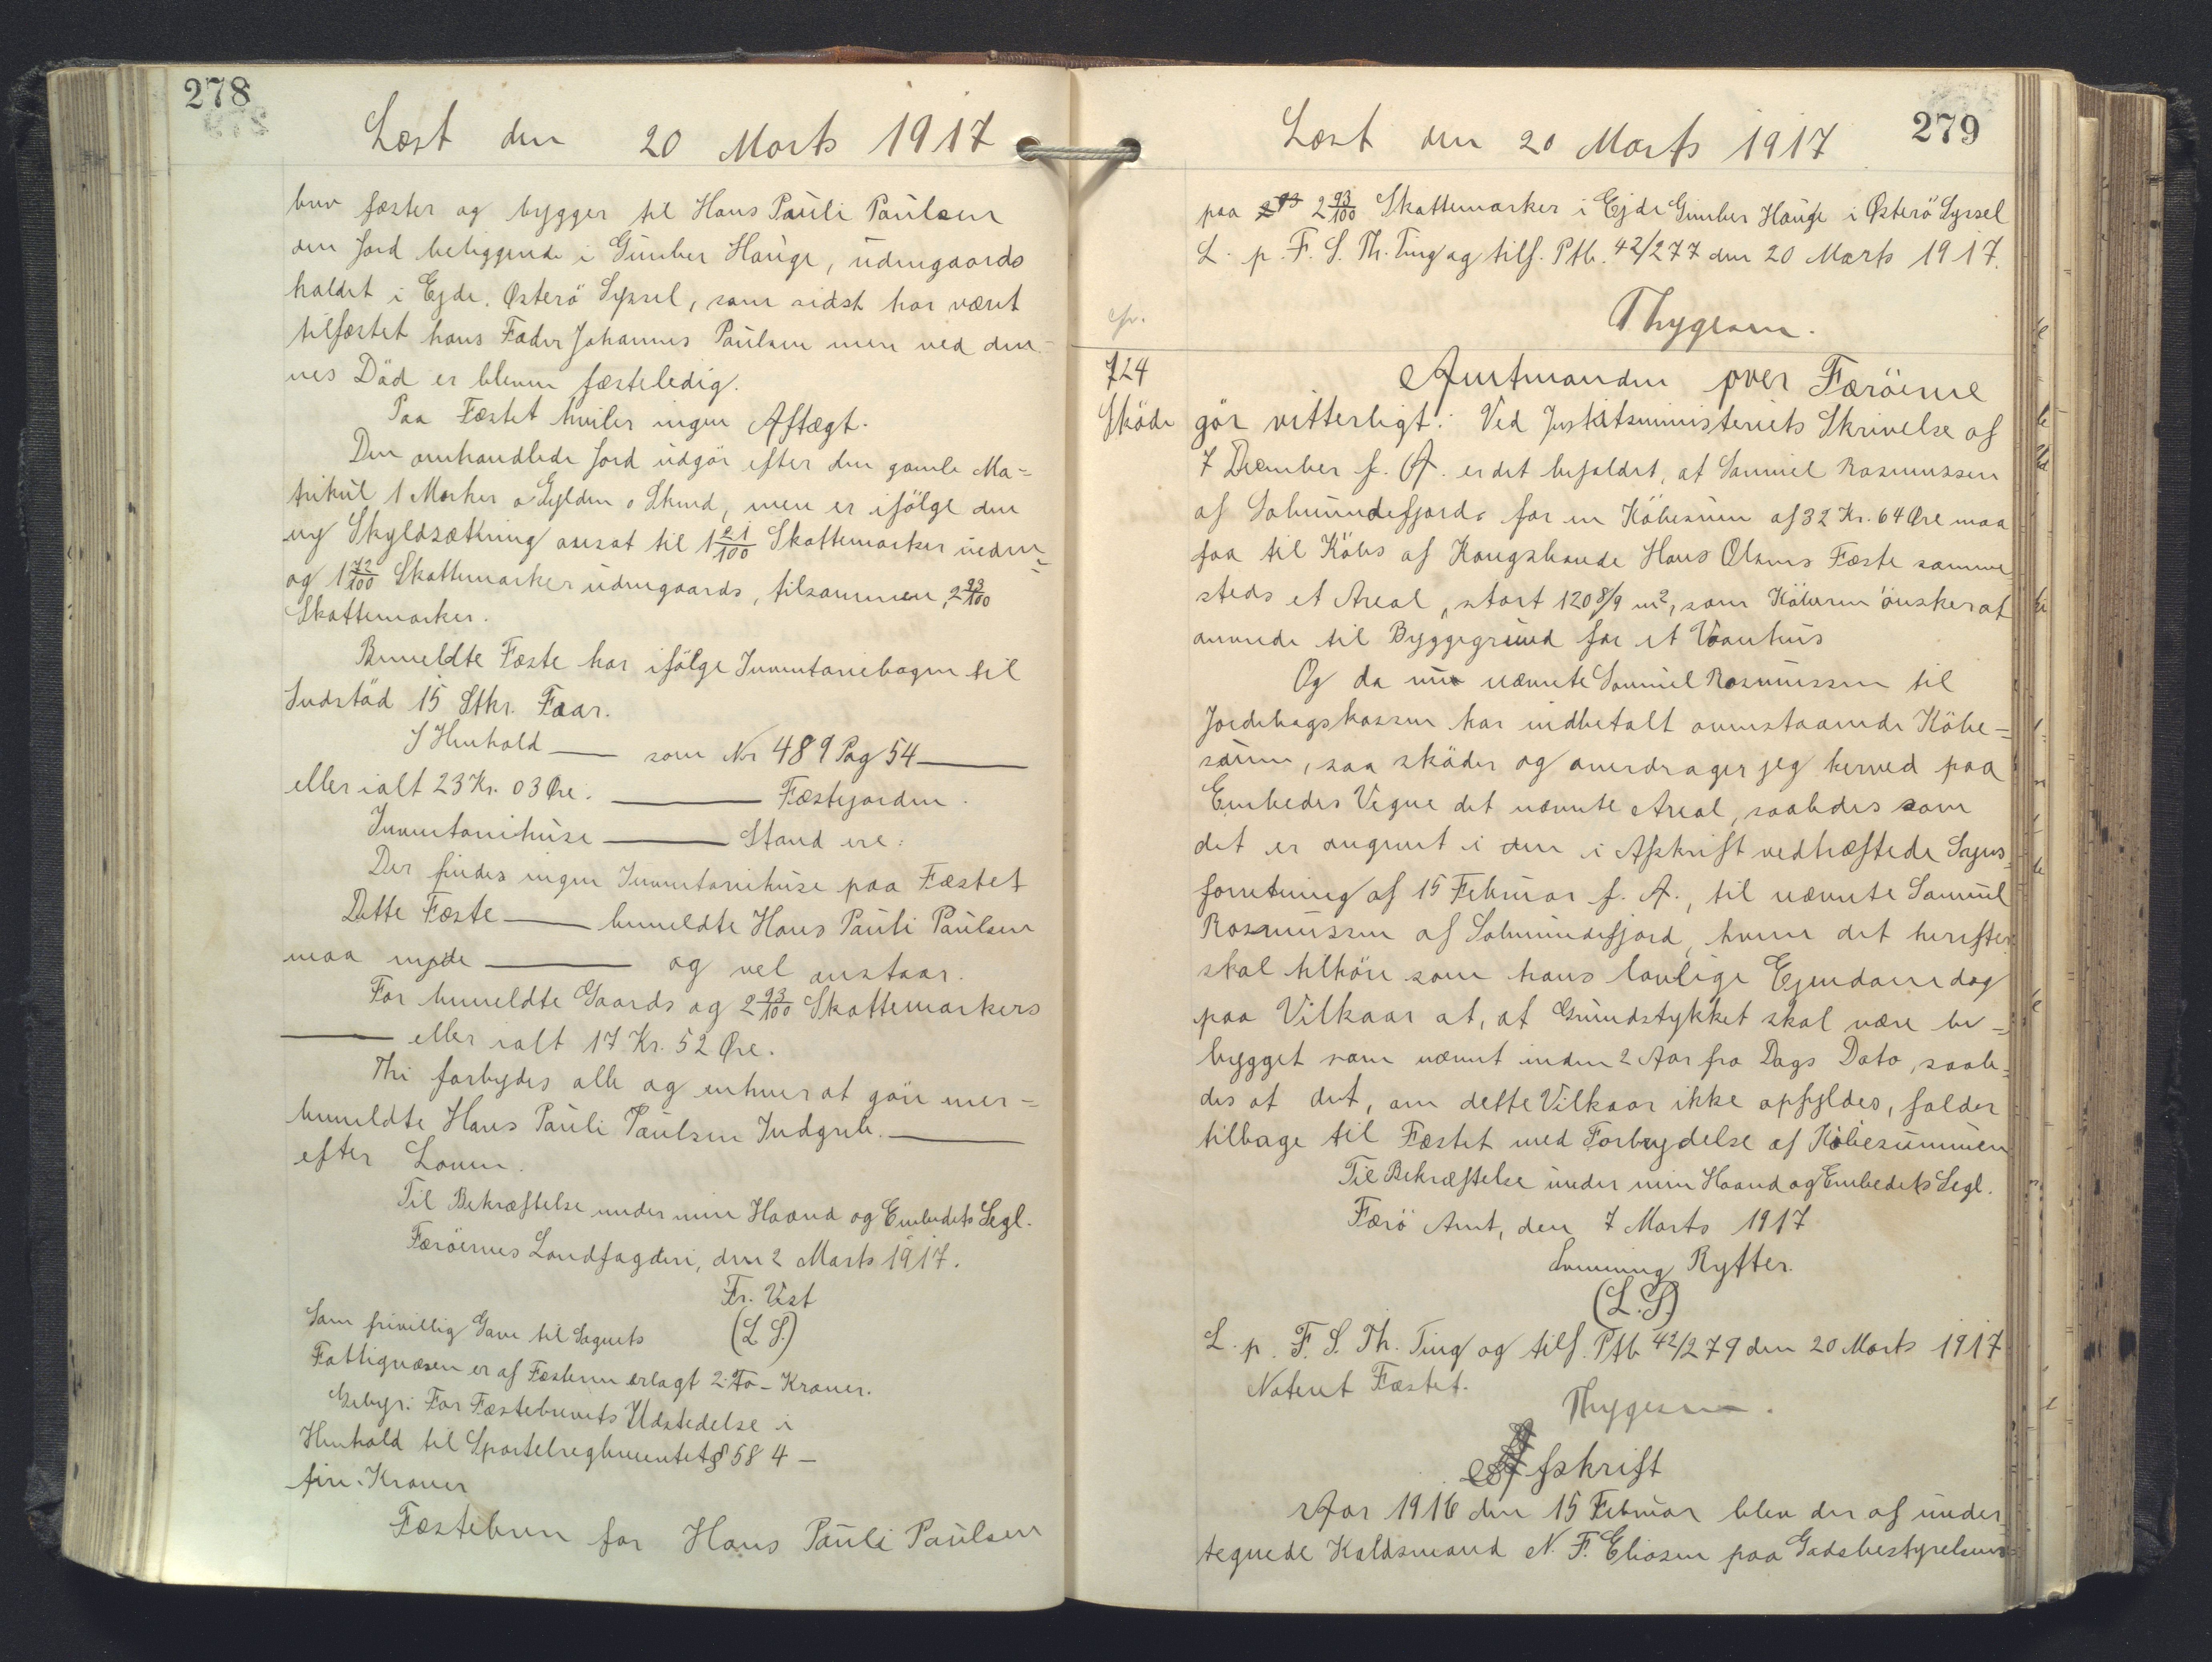 278
Læst den 20 Marts 1917
brev fæster og bygger til Hans Pauli Paulsen
den Jord beliggende i Gumber Hauge, udengaards
haldet i Ejde, Østerö Syssel, som sidst har været
tilfæstet hans Fader Johannes Paulsen men ved den-
nes Död er bleven fæsteledig.
Paa Fæstet hviler ingen Aftægt.
Den omhandlede Jord udgör efter den gamle Ma=
trikul 1 Marker o Gylden o Skind, men er ifölge den
ny Skyldsætning ansat til 1 21/100 Skattemarker inden=
og 1 72/100 Skattemarker udengaards, tilsammen, 2 93/100
Skattemarker.
Bemeldte Fæste har ifölge Inventariebogen til
Indstöd 15 Stkr. Faar.
I Henhold — som Nr 489 Pag 54 —
eller ialt 23 Kr. 03 Øre. — Fæstejorden.
Inventariehuse — Stand ere:
Der findes ingen Inventariehuse paa Fæstet
Dette Fæste — bemeldte Hans Pauli Paulsen
maa nyde — og vel anstaar.
For bemeldte Gaards og 2 93/100 Skattemarkers
— eller ialt 17 Kr. 52 Øre.
Thi forbydes alle og enhver at göre mer=
bemeldte Hans Pauli Paulsen Indgreb. —
efter Loven.
Til Bekræftelse under min Haand og Embedets Segl.
Færöernes Landfogderi, den 2 Marts 1917.
Fr. Vest
(L S.)
Som frivillig Gave til Sognets
Fattigvæsen er af Fæsteren erlagt 2: To - Kroner.
Gebyr: For Fæstebrevets Udstedelse i
Henhold til Sportelreglementets § 58 4 —
fire - Kroner
Fæstebrev for Hans Pauli Paulsen
279
Læst den 20 Marts 1917
paa 2 93/100 Skattemarker i Ejde Gumber Hauge i Østerö Syssel
L. p. F. S. Th. Ting og tilf. Ptb. 42/277 den 20 Marts 1917.
Thygesen.
724
Sköde
Amtmanden over Færöerne
gör vitterligt: Ved Justitsministeriets Skrivelse af
7 December f. A. er det befaldet, at Samuel Rasmussen
af Solmundefjord, for en Köbesum af 32 Kr. 64 Øre maa
faa til Köbs af Kongsbonde Hans Olsens Fæste samme
steds et Areal, stort 120 8/9 m², som Köberen önsker at
anvende til Byggegrund for et Vaanhus
Og da nu nævnte Samuel Rasmussen til
Jordebogskassen har indbetalt ovenstaaende Köbe=
sum, saa sköder og overdrager jeg herved paa
Embedes Vegne det nævnte Areal, saaledes som
det er angivet i den i Afskrift vedhæftede Syns=
forretning af 15 Februar f. A., til nævnte Samuel
Rasmussen af Solmundefjord, hvem det herefter
skal tilhöre som hans lovlige Ejendom dog
paa Vilkaar at, at Grundstykket skal være be=
bygget som nævnt inden 2 Aar fra Dags Dato, saale=
des at det, om dette Vilkaar ikke opfyldes, falder
tilbage til Fæstet med Forbrydelse af Köbesummen
Til Bekræftelse under min Haand og Embedets Segl.
Færö Amt, den 7 Marts 1917
Svenning Rytter.
(L.S.)
L. p. F. S. Th. Ting og tilf. Ptb. 42/279 den 20 Marts 1917
Noteret Fæstet.
Thygesen.
Afskrift
Aar 1916 den 15 Februar blev der af under
tegnede Kaldsmand N. F. Eliasen paa Godsbestyrelsens